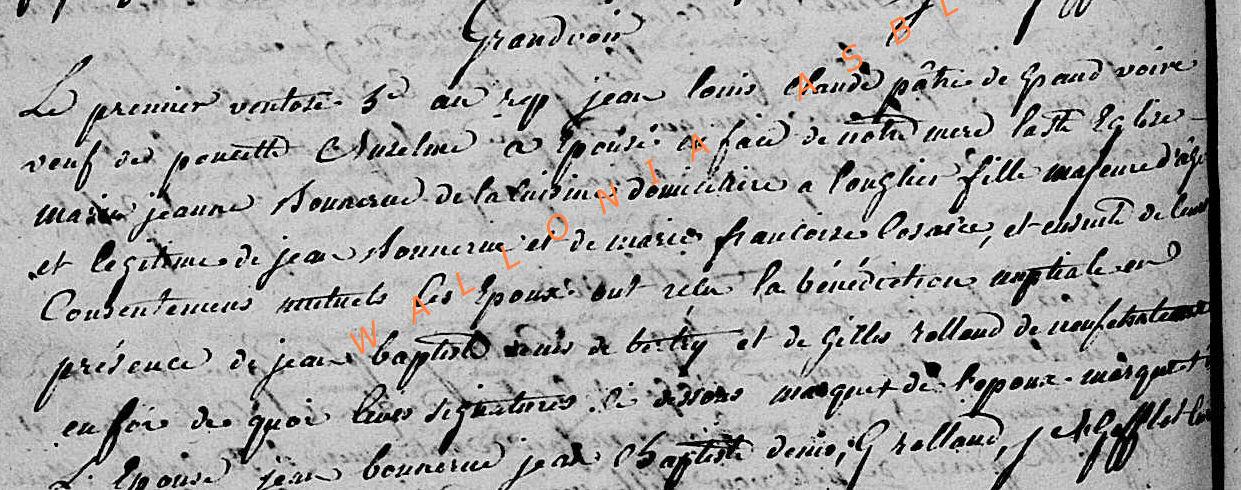 Grandvoir
Le premier ventose 5e an rep jean louis Claude pâtre de Grand voire
veuf de poncette Anselme a Epousé en face de nôtre mere la ste Eglise
marie jeanne Bonnerue de la cuisine domiciliée a longlier fille majeure d'age
et legitime de jean Bonnerue et de marie francoise Cesaire, et ensuite de leurs
Consentemens mutuels les Epoux ont reçu la bénédiction nuptiale en
présence de jean baptiste denis de tertry et de Gilles rolland de neufchateau
en foi de quoi leurs signatures ci dessous marque + de l'epoux marque +
L'Epouse jean bonnerue jean Baptiste denis, G rolland, J
WALLONIA ASBL